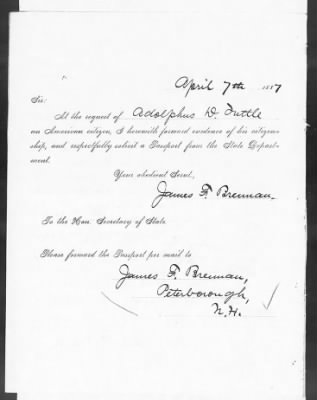 April 7th 1887
Sir:
At the request of Adolphus D. Tuttle
an American citizen, I herewith forward evidence of his citizen-
ship, and respectfully solicit a Passport from the State Depart-
ment.
Your obedient Servt,
James F. Brennan.
To the Hon. Secretary of State.
Please forward the Passport per mail to
James F. Brennan,
Peterborough,
N.H.